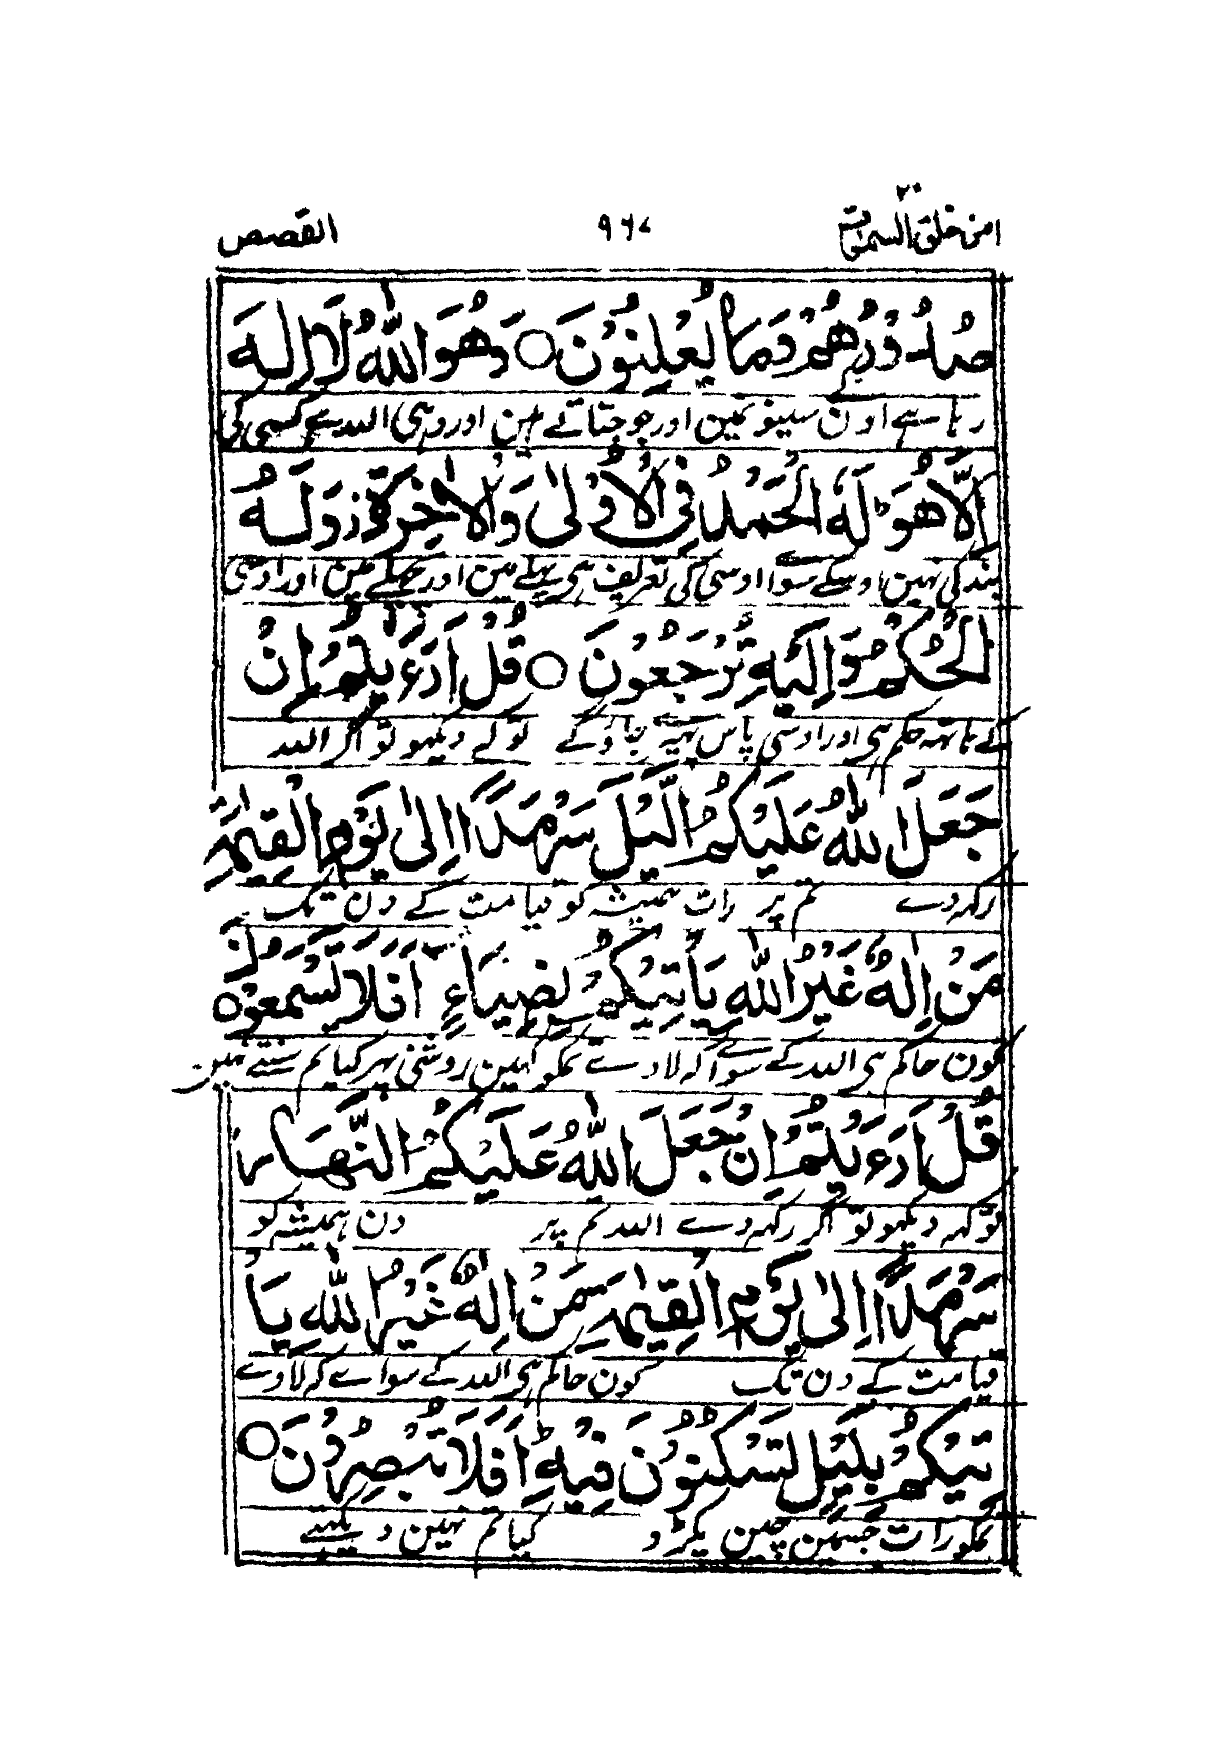 امن خلق السمٰوات ٢٠ ٩٦٧ القصص
صُدُوْرُهُمْ وَمَا يُعْلِنُوْنَ ○ وَهُوَ اللّٰهُ لَا اِلٰهَ
رہا ہے اون سینو نمین اور جو جتاتے ہین اور وہی اللہ ہے کسی کی
اِلَّا هُوَ ؕ لَهُ الْحَمْدُ فِي الْاُوْلٰى وَالْاٰخِرَةِ ز وَلَهُ
بندگی نہین اوسکے سوا اوسی کی تعریف ہی پہلے مین اور پچھلے مین اور اوسی
الْحُكْمُ وَاِلَيْهِ تُرْجَعُوْنَ ○ قُلْ اَرَءَيْتُمْ اِنْ
کے ہاتھہ حکم ہی اور اوسی پاس پھیرے جاؤگے تو کہہ دیکھو تو اگر اللہ
جَعَلَ اللّٰهُ عَلَيْكُمُ الَّيْلَ سَرْمَدًا اِلٰى يَوْمِ الْقِيٰمَةِ
رکہہ دے تم پر رات ہمیشہ کو قیامت کے دن تک
مَنْ اِلٰهٌ غَيْرُ اللّٰهِ يَاْتِيْكُمْ بِضِيَآءٍ ؕ اَفَلَا تَسْمَعُوْنَ ○
کون حاکم ہی اللہ کے سوائے کہ لا دے تمکو کہین روشنی پہر کیا تم سنتے نہین
قُلْ اَرَءَيْتُمْ اِنْ جَعَلَ اللّٰهُ عَلَيْكُمُ النَّهَارَ
تو کہہ دیکھو تو اگر رکہہ دے اللہ تم پر دن ہمیشہ کو
سَرْمَدًا اِلٰى يَوْمِ الْقِيٰمَةِ مَنْ اِلٰهٌ غَيْرُ اللّٰهِ يَاْ
قیامت کے دن تک کون حاکم ہی اللہ کے سوائے کہ لاوے
تِيْكُمْ بِلَيْلٍ تَسْكُنُوْنَ فِيْهِ ؕ اَفَلَا تُبْصِرُوْنَ ○
تمکو رات جسمین چین پکڑو کیا تم نہین دیکھتے